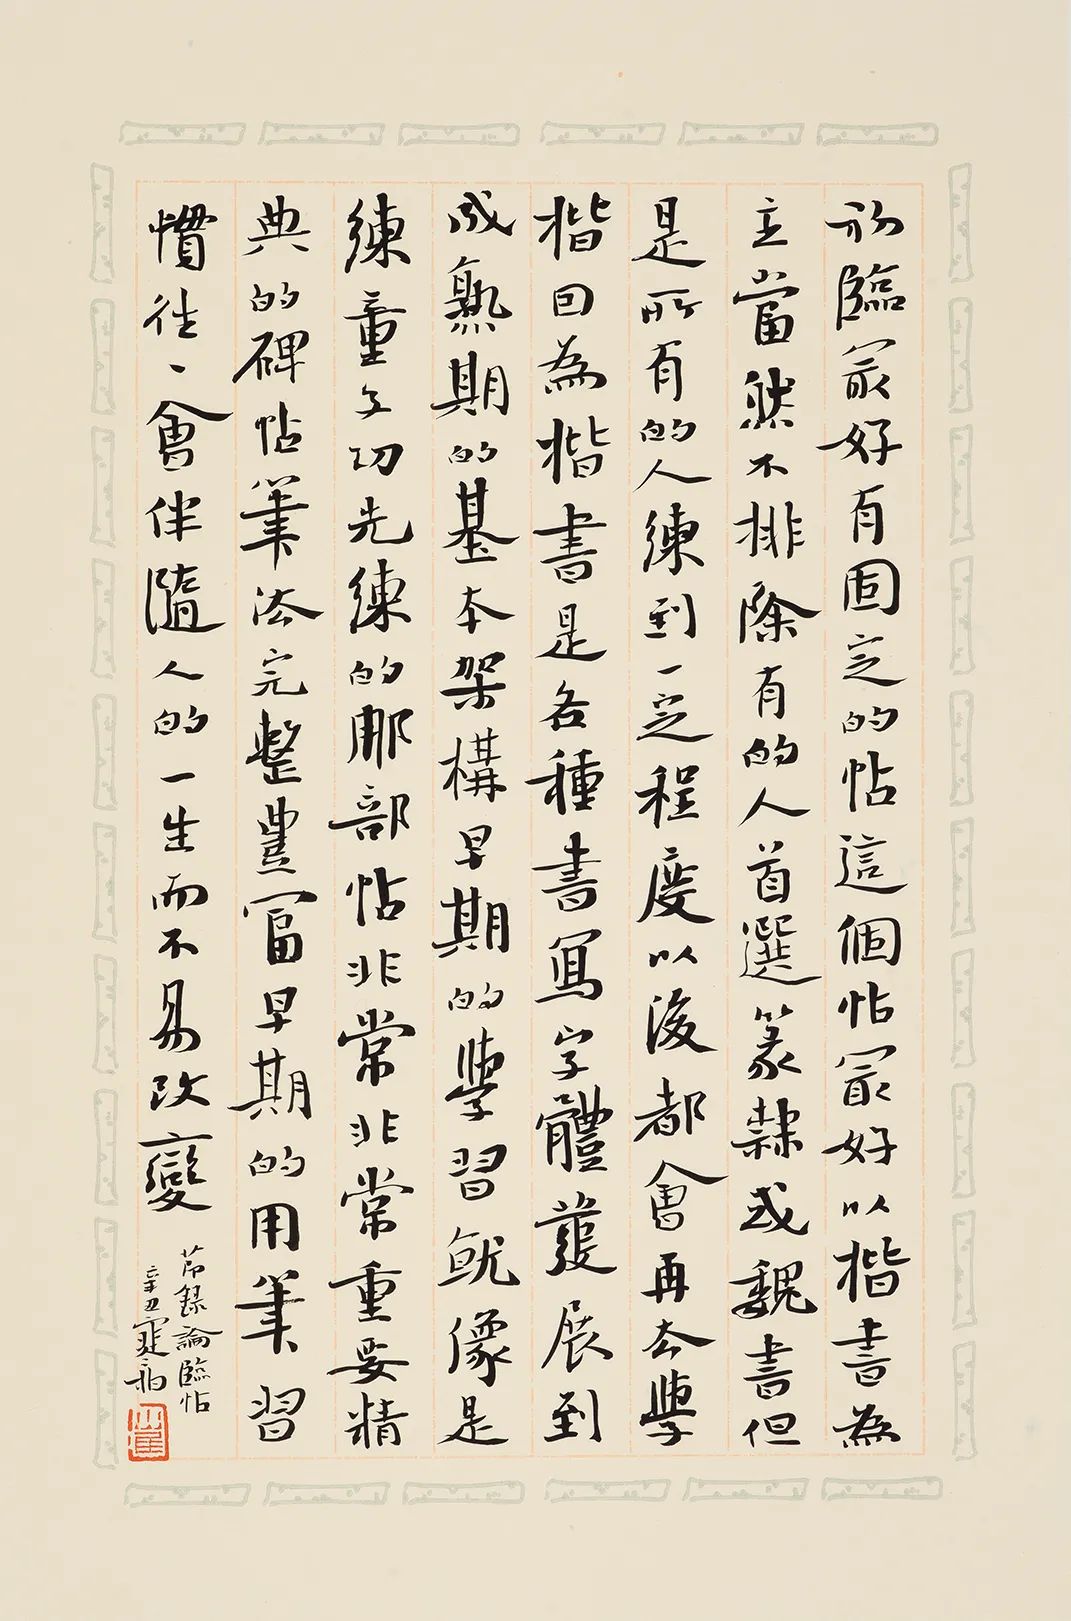 初臨最好有固定的帖這個帖最好以楷書為
主當然不排除有的人首選篆隸或魏書但
是所有的人練到一定程度以後都會再去學
楷因為楷書是各種書寫字體發展到
成熟期的基本架構早期的學習就像是
練童子功先練的那部帖非常非常重要精
典的碑帖筆法完整豐富早期的用筆習
慣往丶會伴隨人的一生而不易改變
節錄論臨帖
辛丑寔初